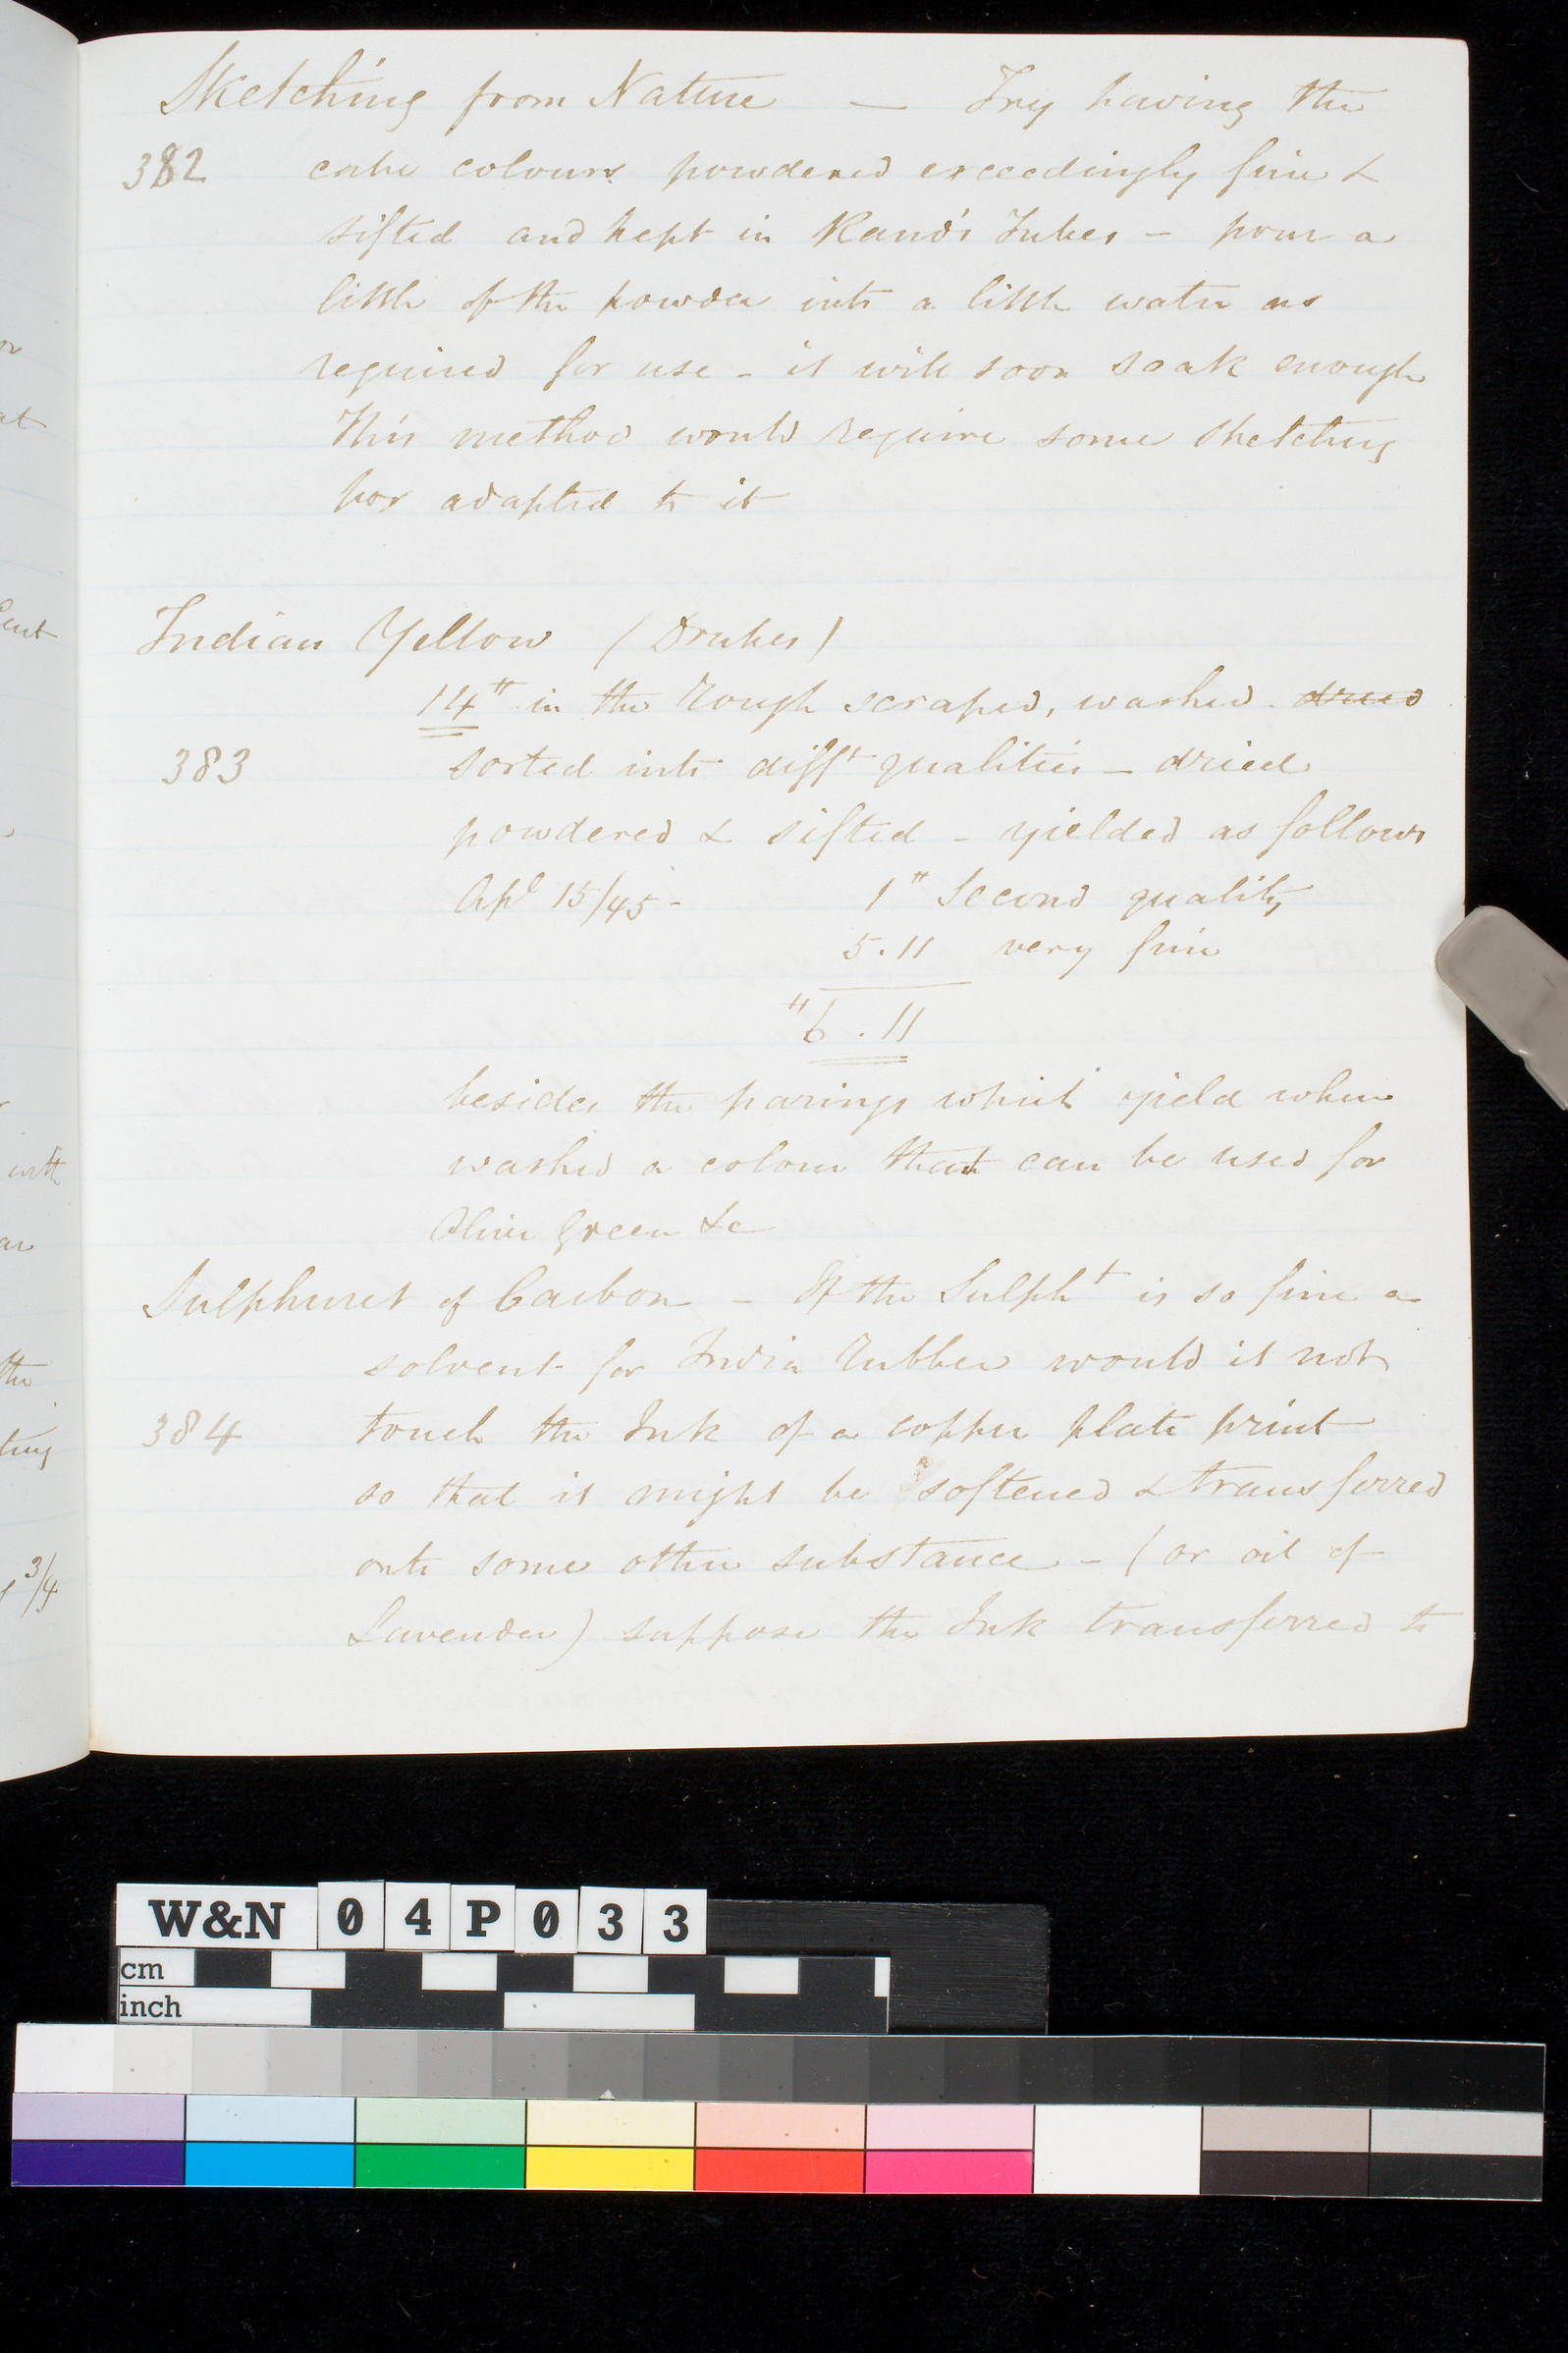 Sketching from Nature — Try having the
382 cake colours powdered exceedingly fine &
sifted and kept in Rand's Tubes – pour a
little of the powder into a little water as
required for use – it will soon soak enough
This method would require some sketching
box adapted to it
Indian Yellow (Drukes)
14" in the rough scraped, washed. dried
383 sorted into diff^t qualities – dried
powdered & sifted – yielded as follows
Apl 15/45 – 1" Second quality
5.11 very fine
"6.11
besides the parings which yield when
washed a colour that can be used for
Olive Green &c
Sulphuret of Carbon – If the Sulph^t is so fine a
solvent for India Rubber would it not
384 touch the Ink of a copper plate print
so that it might be softened & transferred
onto some other substance – (or oil of
Lavender) suppose the Ink transferred to
or
at
with
the
ting
3/4
W&N 04P033
cm
inch